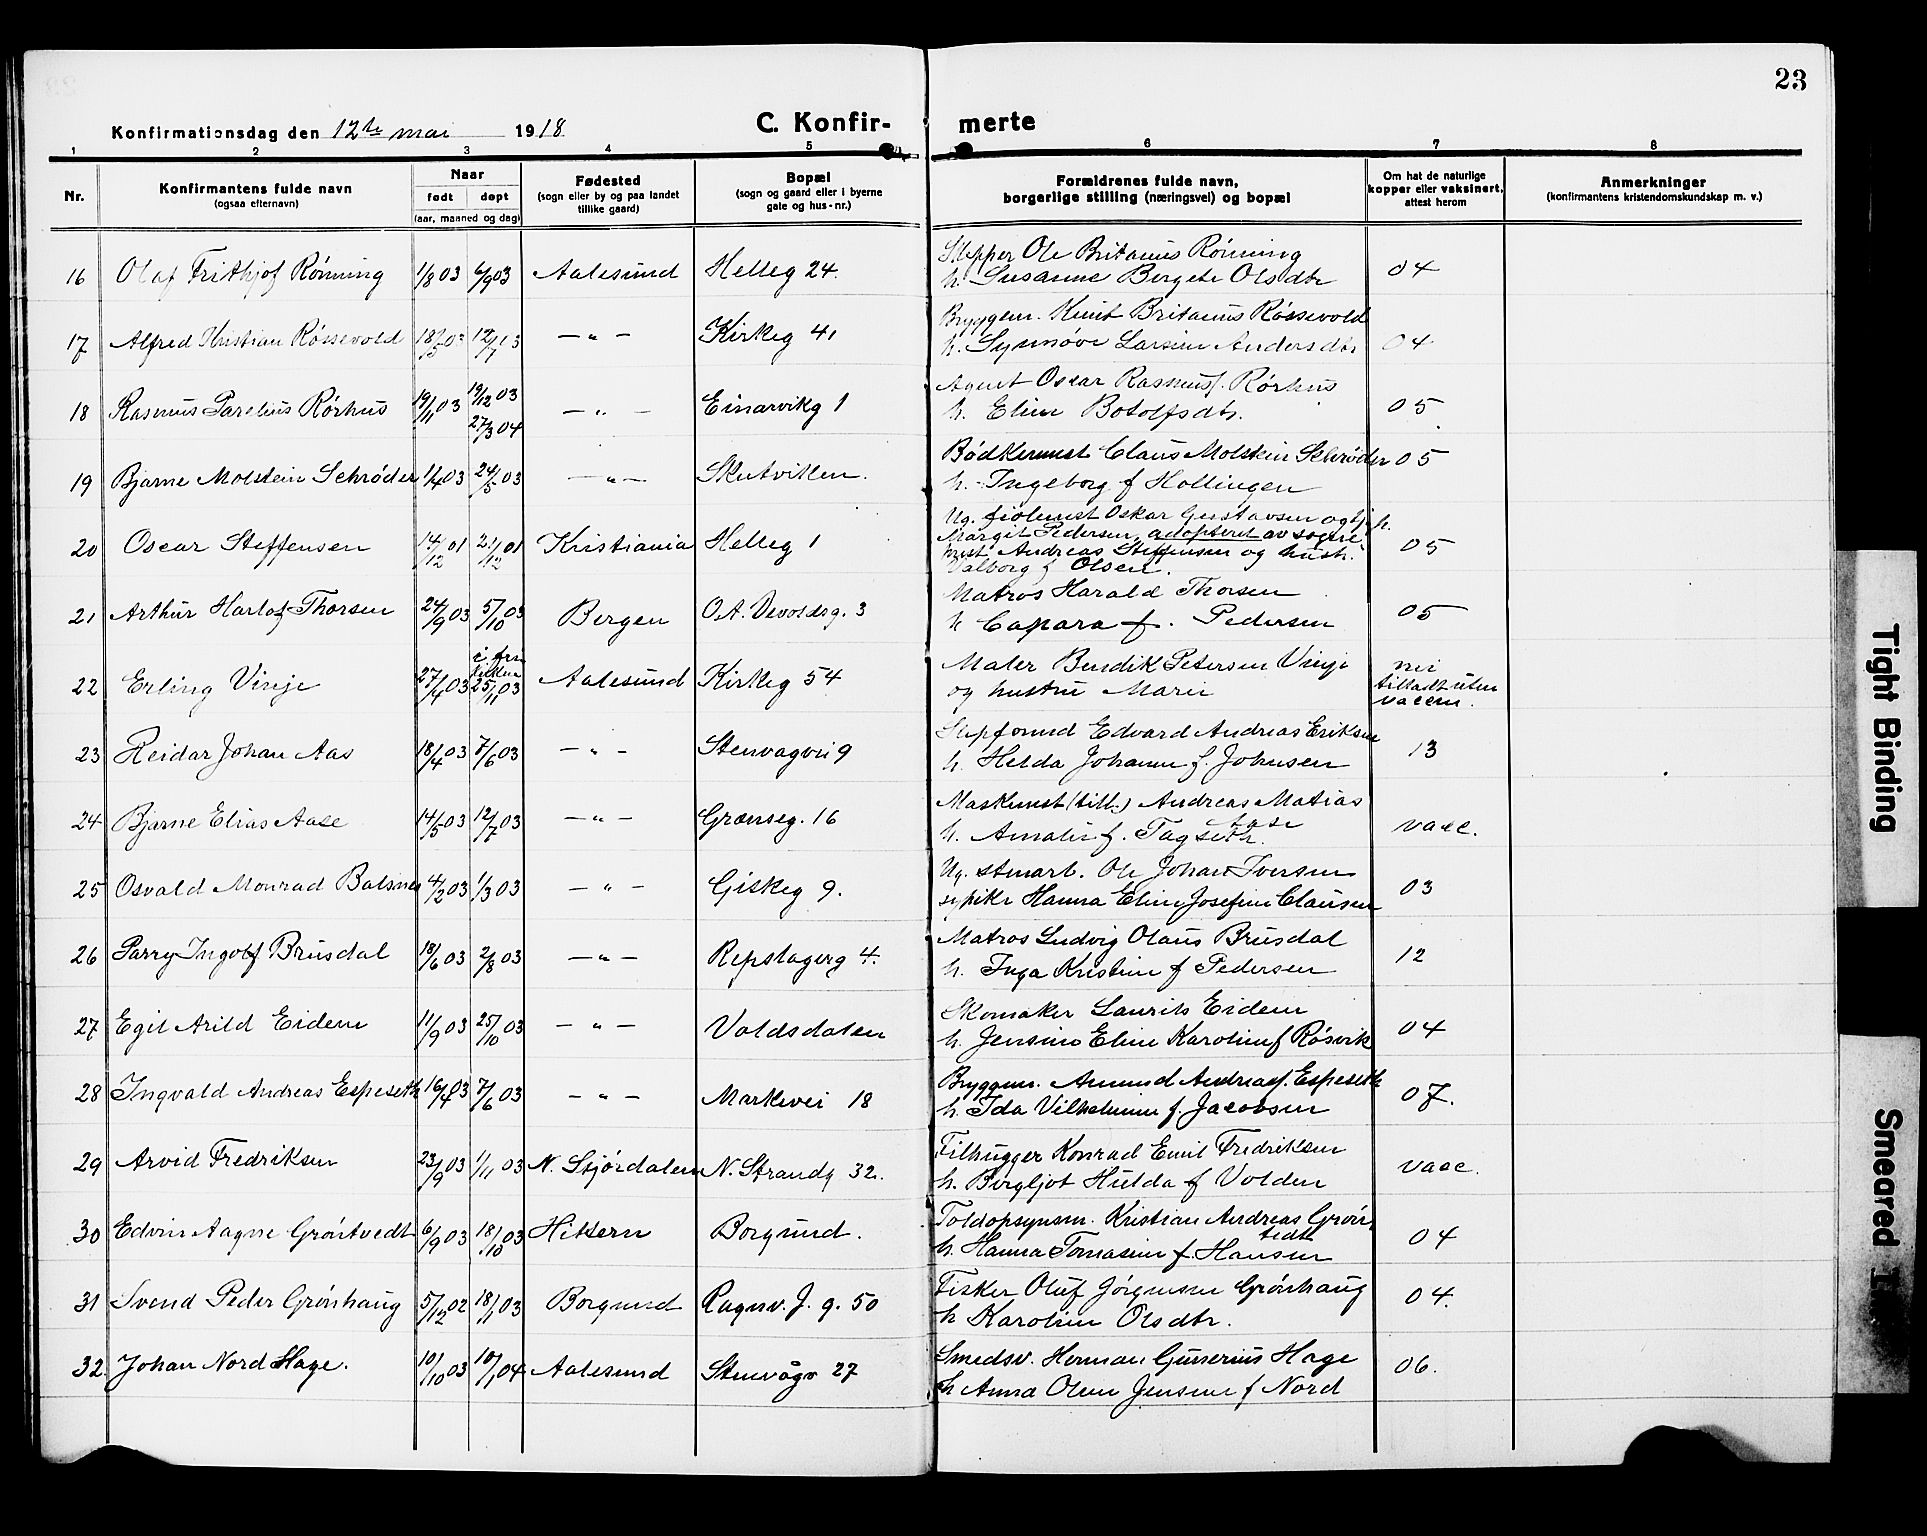 23
Konfirmationsdag den 12te mai 1918
C. Konfir- merte
1 2 3 4 5 6 7 8
Nr.
Konfirmantens fulde navn
(ogsaa efternavn)
Naar
født døpt
(aar, maaned og dag)
Fødested
(sogn eller by og paa landet
tillike gaard)
Bopæl
(sogn og gaard eller i byerne
gate og hus-nr.)
Forældrenes fulde navn,
borgerlige stilling (næringsvei) og bopæl
Om hat de naturlige
kopper eller vaksinert,
attest herom
Anmerkninger
(konfirmantens kristendomskundskap m. v.)
16 Olaf Frithjof Rønning 1/8 03 6/9 03 Aalesund Helleg 24.
Skipper Ole Britanus Rønning
h. Susanne Bergete Olsdtr 04
17 Alfred Kristian Røssevold 18/5 03 12/7 03 — „ — Kirkeg 41
Bryggem. Knut Britanus Røssevold
h. Synnøve Larsine Andersdtr 04
18 Rasmus Parelius Rørhus 19/11 03 19/12 03 27/3 04 — „ — Einarvikg 1
Agent Oscar Rasmusf. Rørhus
h. Eline Botolfsdtr. 05
19 Bjarne Molstein Schrøder 1/4 03 24/5 03 — „ — Skutviken.
Bødkermest Claus Molstein Schrøder 05
h. Ingeborg f Hollingen
20 Oscar Steffensen 14/12 01 21/12 01 Kristiania Helleg 1
Ug. fiolmest Oskar Gustavsen og tj.p.
Margit Pedersen, adopteret av
Andreas Steffensen og hustr.
Valborg f Olsen. 05
21 Arthur Harlof Thorsen 24/9 03 5/10 03 Bergen O.A. Devoldsg. 3
Matros Harald Thorsen
h Capara f. Pedersen 05
22 Erling Vinje 27/4 03 i fri kirken 25/11 03 Aalesund Kirkeg 54
Maler Bendik Petersen Vinje
og hustru Marie
nei
tilladt uten
vaccin.
23 Reidar Johan Aas 18/4 03 7/6 03 — „ — Stenvagvei 9
Skipsformd Edvard Andreas Eriksen
h. Helda Johanne f. Johnsen 13
24 Bjarne Elias Aase 14/5 03 12/7 03 — „ — Grænseg. 16
Maskinist (till.) Andreas Matias
Aase
h. Amalie f. Tagseth. vacc.
25 Osvald Monrad Balsnes 4/2 03 1/3 03 — „ — Giskeg 9.
Ug. stuearb. Ole Johan Iversen
sypike Hanna Eline Josefine Clausen 03
26 Parry Ingolf Brusdal 18/6 03 2/8 03 — „ — Repslagerg 4.
Matros Ludvig Olaus Brusdal
h. Inga Kristine f Pedersen 12
27 Egil Arild Eidem 11/9 03 25/10 03 — „ — Voldsdalen
Skomaker Laurits Eidem
h. Jensine Eline Karoline f Røsvik 04
28 Ingvald Andreas Espeseth 16/4 03 7/6 03 — „ — Markevei 18
Bryggem. Amund Andreasf. Espeseth
h. Ida Vilhelmine f. Jacobsen 07.
29 Arvid Fredriksen 23/9 03 1/11 03 N. Stjørdalen N. Strandg 32.
Filhugger Konrad Emil Fredriksen
h. Bergljot Hulda f Volden vacc.
30 Edvin Aagne Grøntvedt 6/9 03 18/10 03 Hitteren Borgund.
Toldopsynsm. Kristian Andreas Grøn-
tvedt
h. Hanna Tomasine f. Hansen 04
31 Svend Peder Grønhaug 5/12 02 18/1 03 Borgund Ragnv. J. g. 50
Fisker Oluf Jørgensen Grønhaug
h Karoline Olsdtr. 04.
32. Johan Nord Hage. 10/10 03 10/1 04 Aalesund Stenvågv 27
Smedsv. Herman Gunerius Hage
h Anna Oline Jensine f Nord 06.
Tight Binding
Smeared